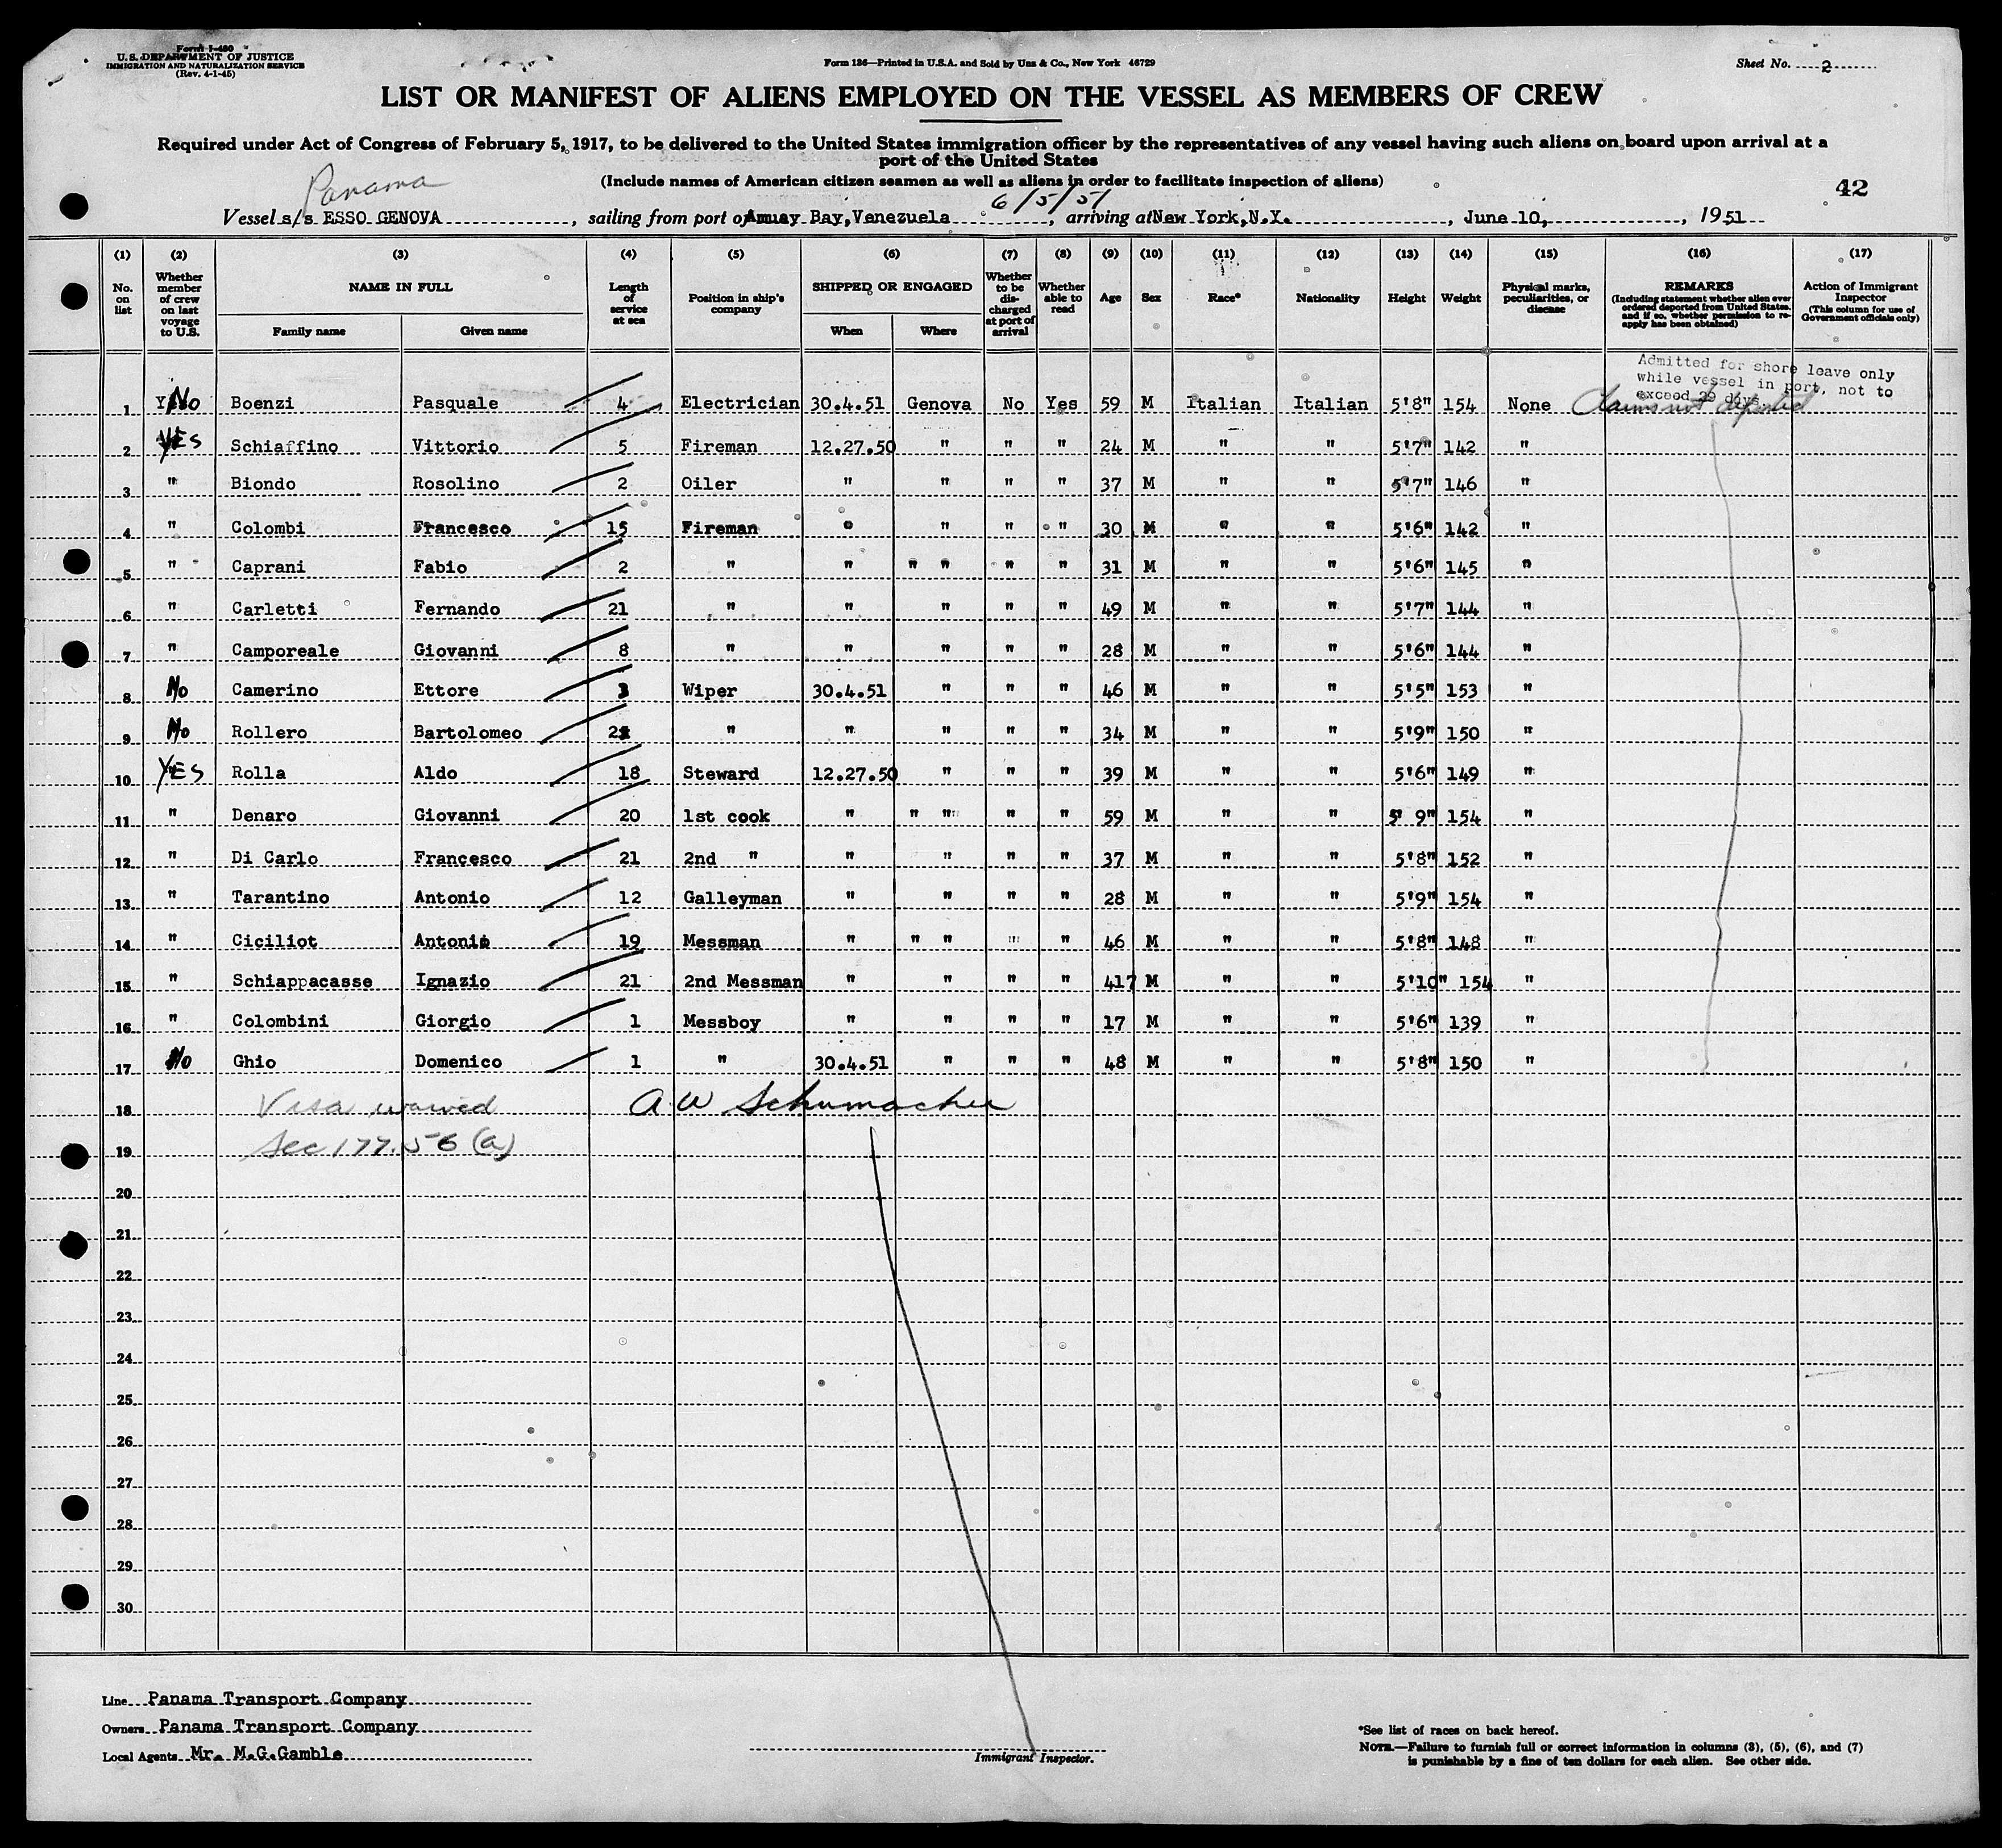 Form I-480
U.S. DEPARTMENT OF JUSTICE
IMMIGRATION AND NATURALIZATION SERVICE
(Rev. 4-1-45)
Form 136—Printed in U.S.A. and Sold by Unz & Co., New York 46729
Sheet No. 2
LIST OR MANIFEST OF ALIENS EMPLOYED ON THE VESSEL AS MEMBERS OF CREW
Required under Act of Congress of February 5, 1917, to be delivered to the United States immigration officer by the representatives of any vessel having such aliens on board upon arrival at a
port of the United States
(Include names of American citizen seamen as well as aliens in order to facilitate inspection of aliens)
42
Panama
6/5/51
Vessel s/s ESSO GENOVA, sailing from port of Amuay Bay, Venezuela, arriving at New York, N.Y., June 10, 1951
(1) (2) (3) (4) (5) (6) (7) (8) (9) (10) (11) (12) (13) (14) (15) (16) (17)
No. on list
Whether member of crew on last voyage to U.S.
NAME IN FULL
Family name
Given name
Length of service at sea
Position in ship's company
SHIPPED OR ENGAGED
When
Where
Whether to be discharged at port of arrival
Whether able to read
Age
Sex
Race*
Nationality
Height
Weight
Physical marks, peculiarities, or disease
REMARKS
(Including statement whether alien ever ordered deported from United States, and if so, whether permission to reapply has been obtained)
Action of Immigrant Inspector
(This column for use of Government officials only)
Admitted for shore leave only
while vessel in port, not to
exceed 29 days
Claims not deported
1 No Boenzi Pasquale 4 Electrician 30.4.51 Genova No Yes 59 M Italian Italian 5'8" 154 None
2 YES Schiaffino Vittorio 5 Fireman 12.27.50 " " " 24 M " " 5'7" 142 "
3 " Biondo Rosolino 2 Oiler " " " " 37 M " " 5'7" 146 "
4 " Colombi Francesco 15 Fireman " " " " 30 M " " 5'6" 142 "
5 " Caprani Fabio 2 " " " " " " 31 M " " 5'6" 145 "
6 " Carletti Fernando 21 " " " " " 49 M " " 5'7" 144 "
7 " Camporeale Giovanni 8 " " " " " 28 M " " 5'6" 144 "
8 No Camerino Ettore 3 Wiper 30.4.51 " " " 46 M " " 5'5" 153 "
9 No Rollero Bartolomeo " " " " " 34 M " " 5'9" 150 "
10 YES Rolla Aldo 18 Steward 12.27.50 " " " 39 M " " 5'6" 149 "
11 " Denaro Giovanni 20 1st cook " " " " " 59 M " " 5' 9" 154 "
12 " Di Carlo Francesco 21 2nd " " " " " 37 M " " 5'8" 152 "
13 " Tarantino Antonio 12 Galleyman " " " " 28 M " " 5'9" 154 "
14 " Ciciliot Antonio 19 Messman " " " " " 46 M " " 5'8" 148 "
15 " Schiappacasse Ignazio 21 2nd Messman " " " " 417 M " " 5'10" 154 "
16 " Colombini Giorgio 1 Messboy " " " " 17 M " " 5'6" 139 "
17 No Ghio Domenico 1 " 30.4.51 " " " 48 M " " 5'8" 150 "
18 Visa waived A W Schumacher
19 Sec 177.56 (a)
20
21
22
23
24
25
26
27
28
29
30
Line Panama Transport Company
Owners Panama Transport Company
Local Agents Mr. M.G.Gamble
Immigrant Inspector.
*See list of races on back hereof.
NOTE.—Failure to furnish full or correct information in columns (3), (5), (6), and (7)
is punishable by a fine of ten dollars for each alien. See other side.